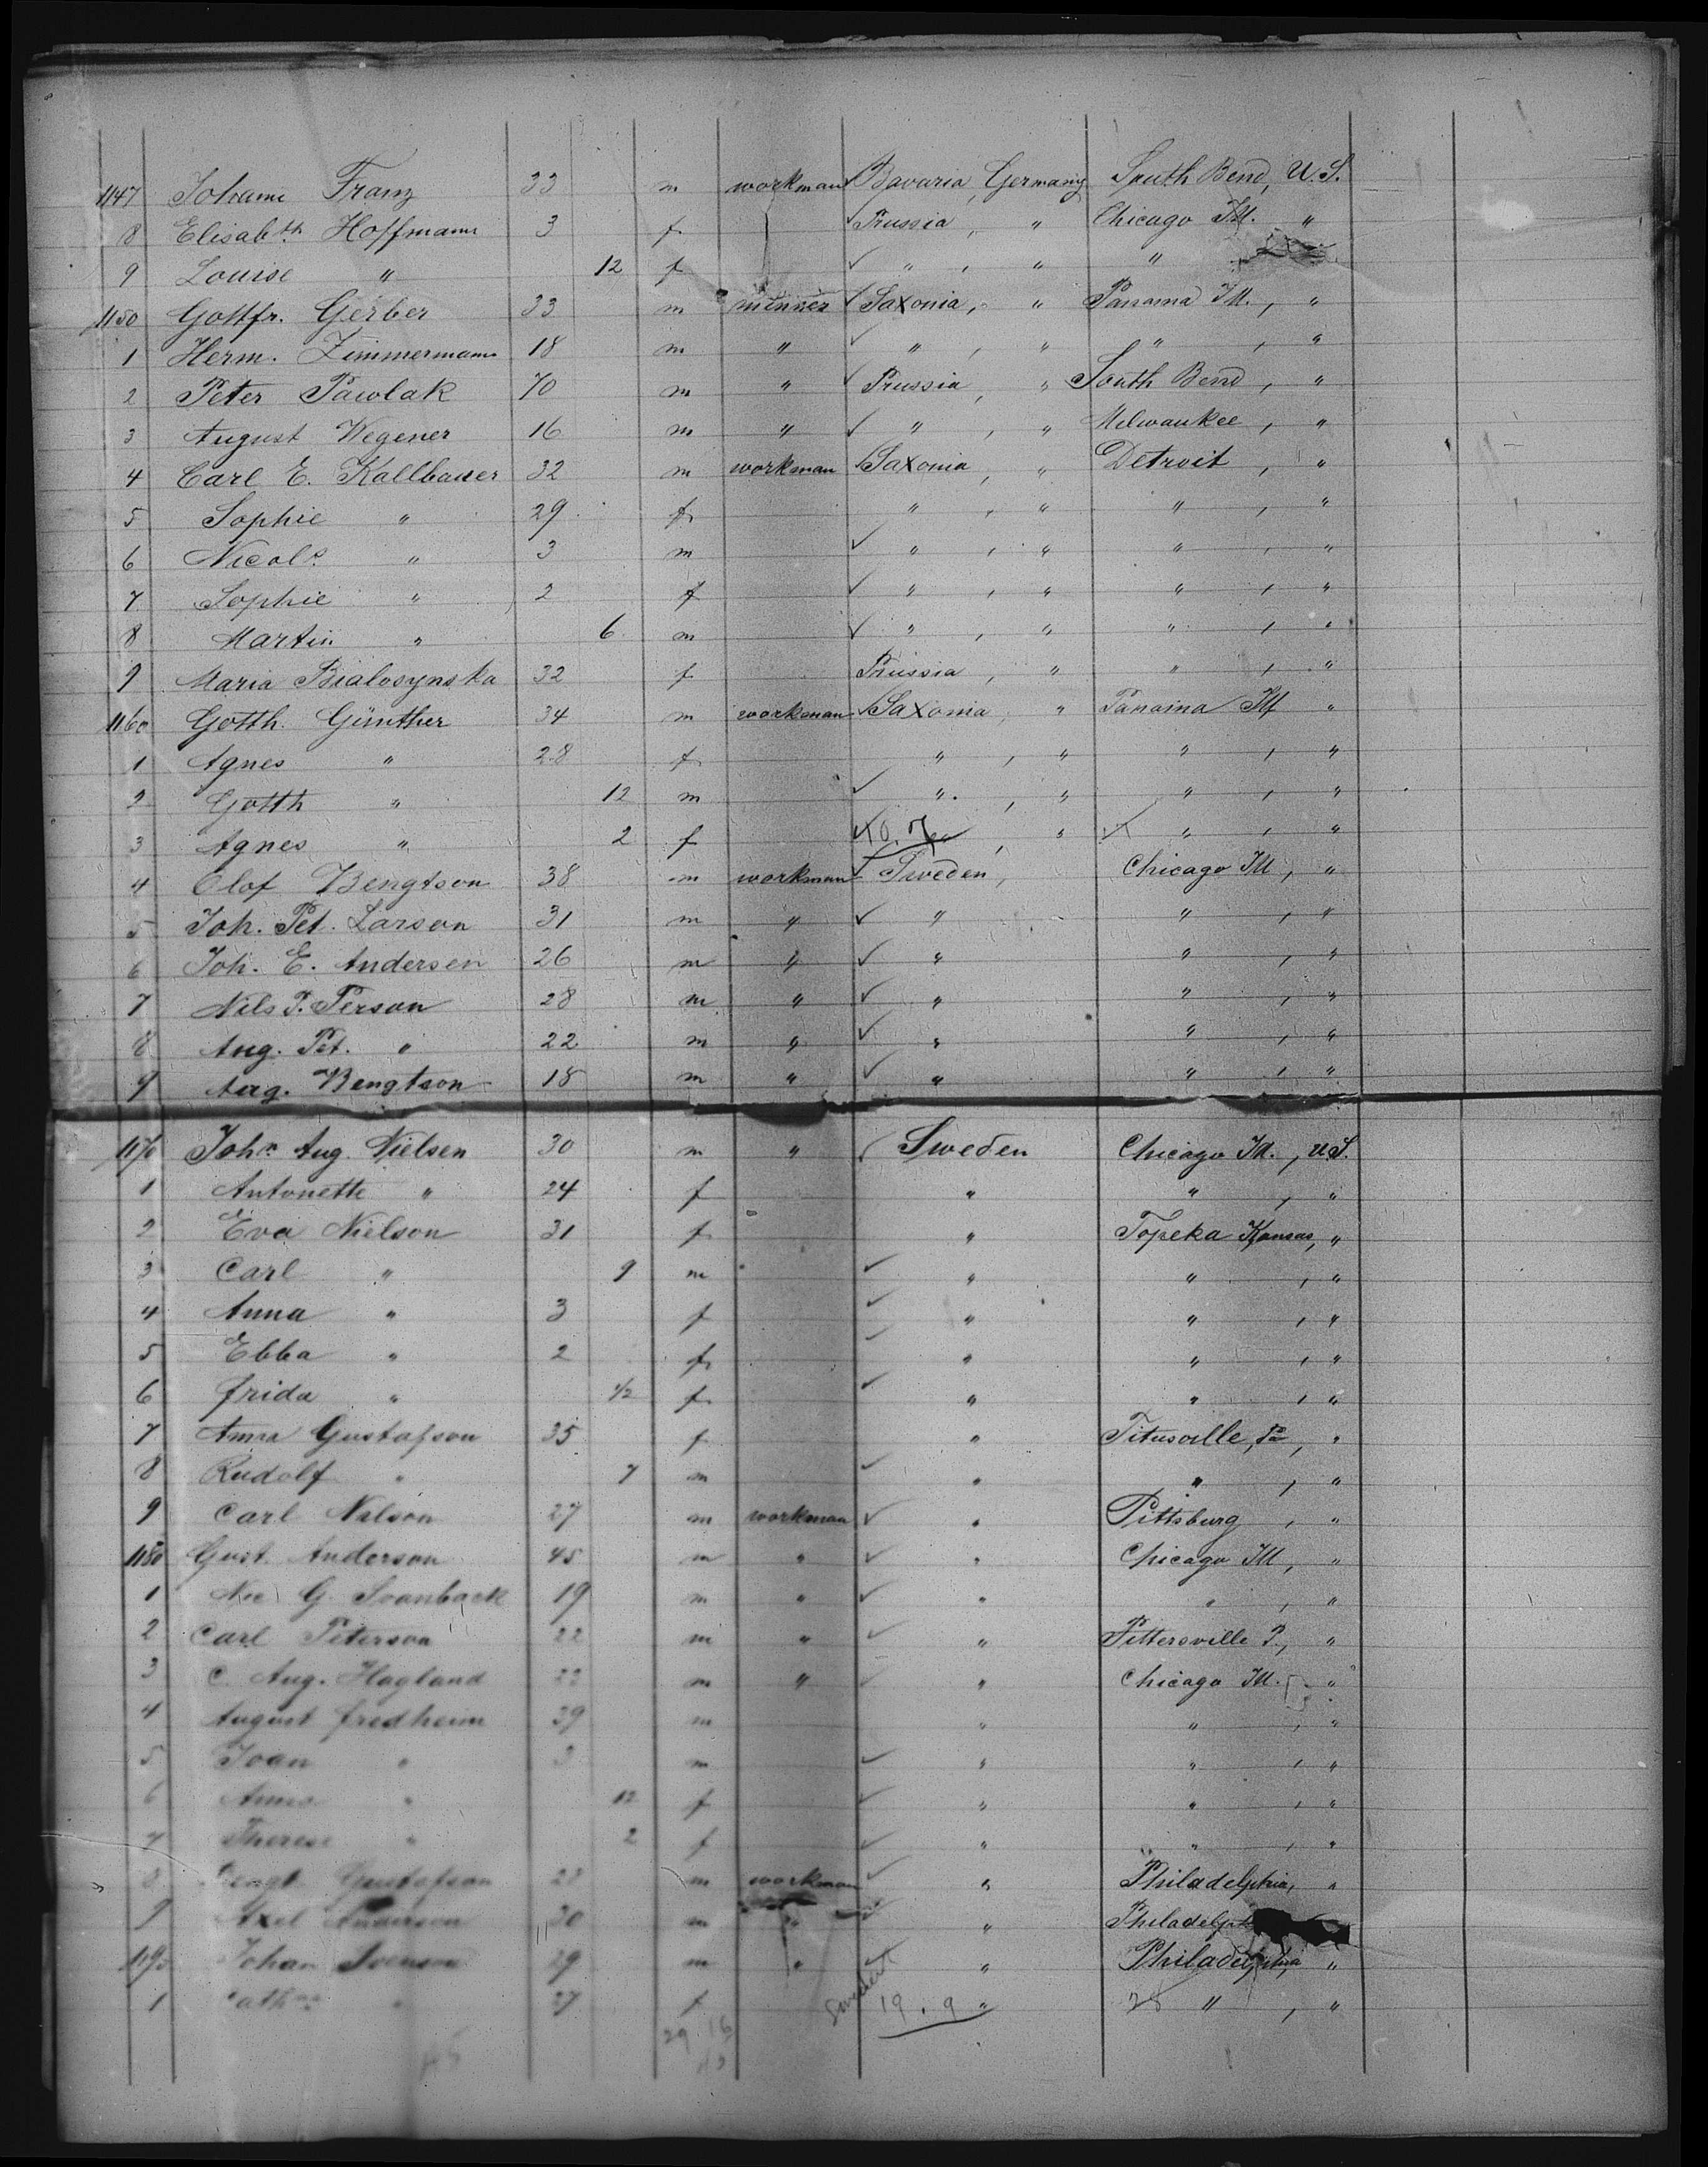 1147 Johann Franz 33 m workman ✓ Bavaria, Germany South Bend, U.S.
8 Elisabth Hoffmann 3 f ✓ Prussia, " Chicago Ill. "
9 Louise " 12 f ✓ " , " "
1150 Gottfr. Gerber 33 m minner ✓ Saxonia, " Panama Ill. , "
1 Herm. Zimmermann 18 m " ✓ " , " " , "
2 Peter Pawlak 70 m " ✓ Prussia, " South Bend , "
3 August Wegener 16 m " ✓ " , " Milwaukee , "
4 Carl E. Kallbauer 32 m workman ✓ Saxonia , " Detroit , "
5 Sophie " 29 f " , " " , "
6 Nicols " 3 m ✓ " , " " , "
7 Sophie " 2 f ✓ " , " " , "
8 Martin " 6 m ✓ " , " " , "
9 Maria Bialosynska 32 f Prussia , " " , "
1160 Gotth. Günther 34 m workman ✓ Saxonia , " Panama Ill "
1 Agnes " 28 f " , " " , "
2 Gotth " 12 m ✓ " , " " , "
3 Agnes " 2 f , " " , "
4 Olof Bengtson 38 m workman ✓ Sweden, Chicago Ill , "
5 Joh. Pet. Larson 31 m " ✓ " " , "
6 Joh. E. Andersen 26 m " ✓ " " , "
7 Nils P. Person 28 m " ✓ " " , "
8 Aug. Pet. " 22 m " ✓ " " , "
9 Aug. Bengtson 18 m " ✓ " " , "
1170 Johs Aug. Nielsen 30 m " Sweden Chicago Ill. , U.S.
1 Antonette " 24 f " " , "
2 Eva Nielson 31 f " Topeka Kansas, "
3 Carl " 9 m ✓ " " , "
4 Anna " 3 f ✓ " " , "
5 Ebba " 2 f ✓ " " , "
6 Frida " 1/2 f ✓ " " , "
7 Anna Gustafson 35 f " Titusville, Pa , "
8 Rudolf " 7 m ✓ " " , "
9 Carl Nilson 27 m workman ✓ " Pittsburg , "
1180 Gust. Anderson 45 m " ✓ " Chicago Ill , "
1 G. Svanback 19 m " ✓ " " , "
2 Carl Peterson 22 m " ✓ " Pittersville P., "
3 C. Aug. Hagland 22 m " ✓ " Chicago Ill. "
4 August Fredheim 39 m " " , "
5 Joan " 3 m ✓ " " , "
6 Anna " 12 f ✓ " " , "
7 Therese " 2 f ✓ " " , "
8 Bengt Gustafson 28 m workman ✓ " Philadelphia, "
9 Axel Anderson 30 m " ✓ "
1190 Johan Svenson 29 m " ✓ " Philadelphia "
1 " 27 f Sweden 19 . 9 " 28 " , "
29 16